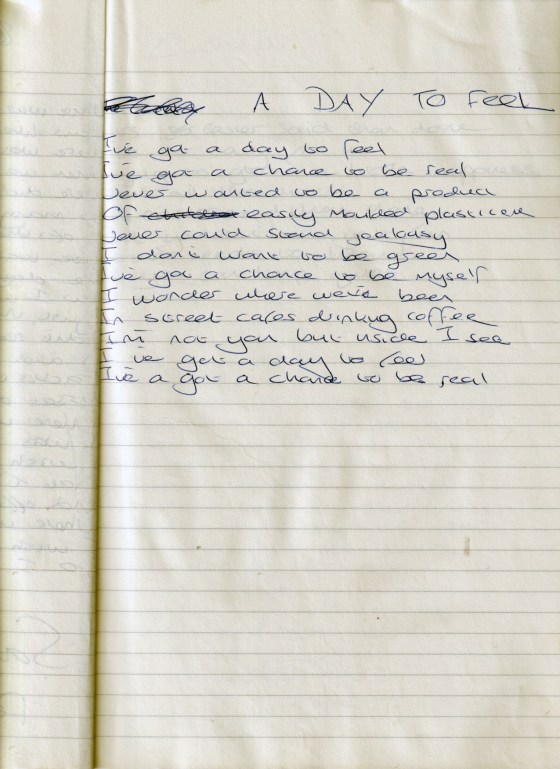 A DAY TO FEEL
I've got a day to feel
I've got a chance to be real
Never wanted to be a product
Of easily moulded plasticene
Never could stand jealousy
I don't want to be green
I've got a chance to be myself
I wonder where we've been
In street cafes drinking coffee
I'm not you but inside I see
I've got a day to feel
I've a got a chance to be real